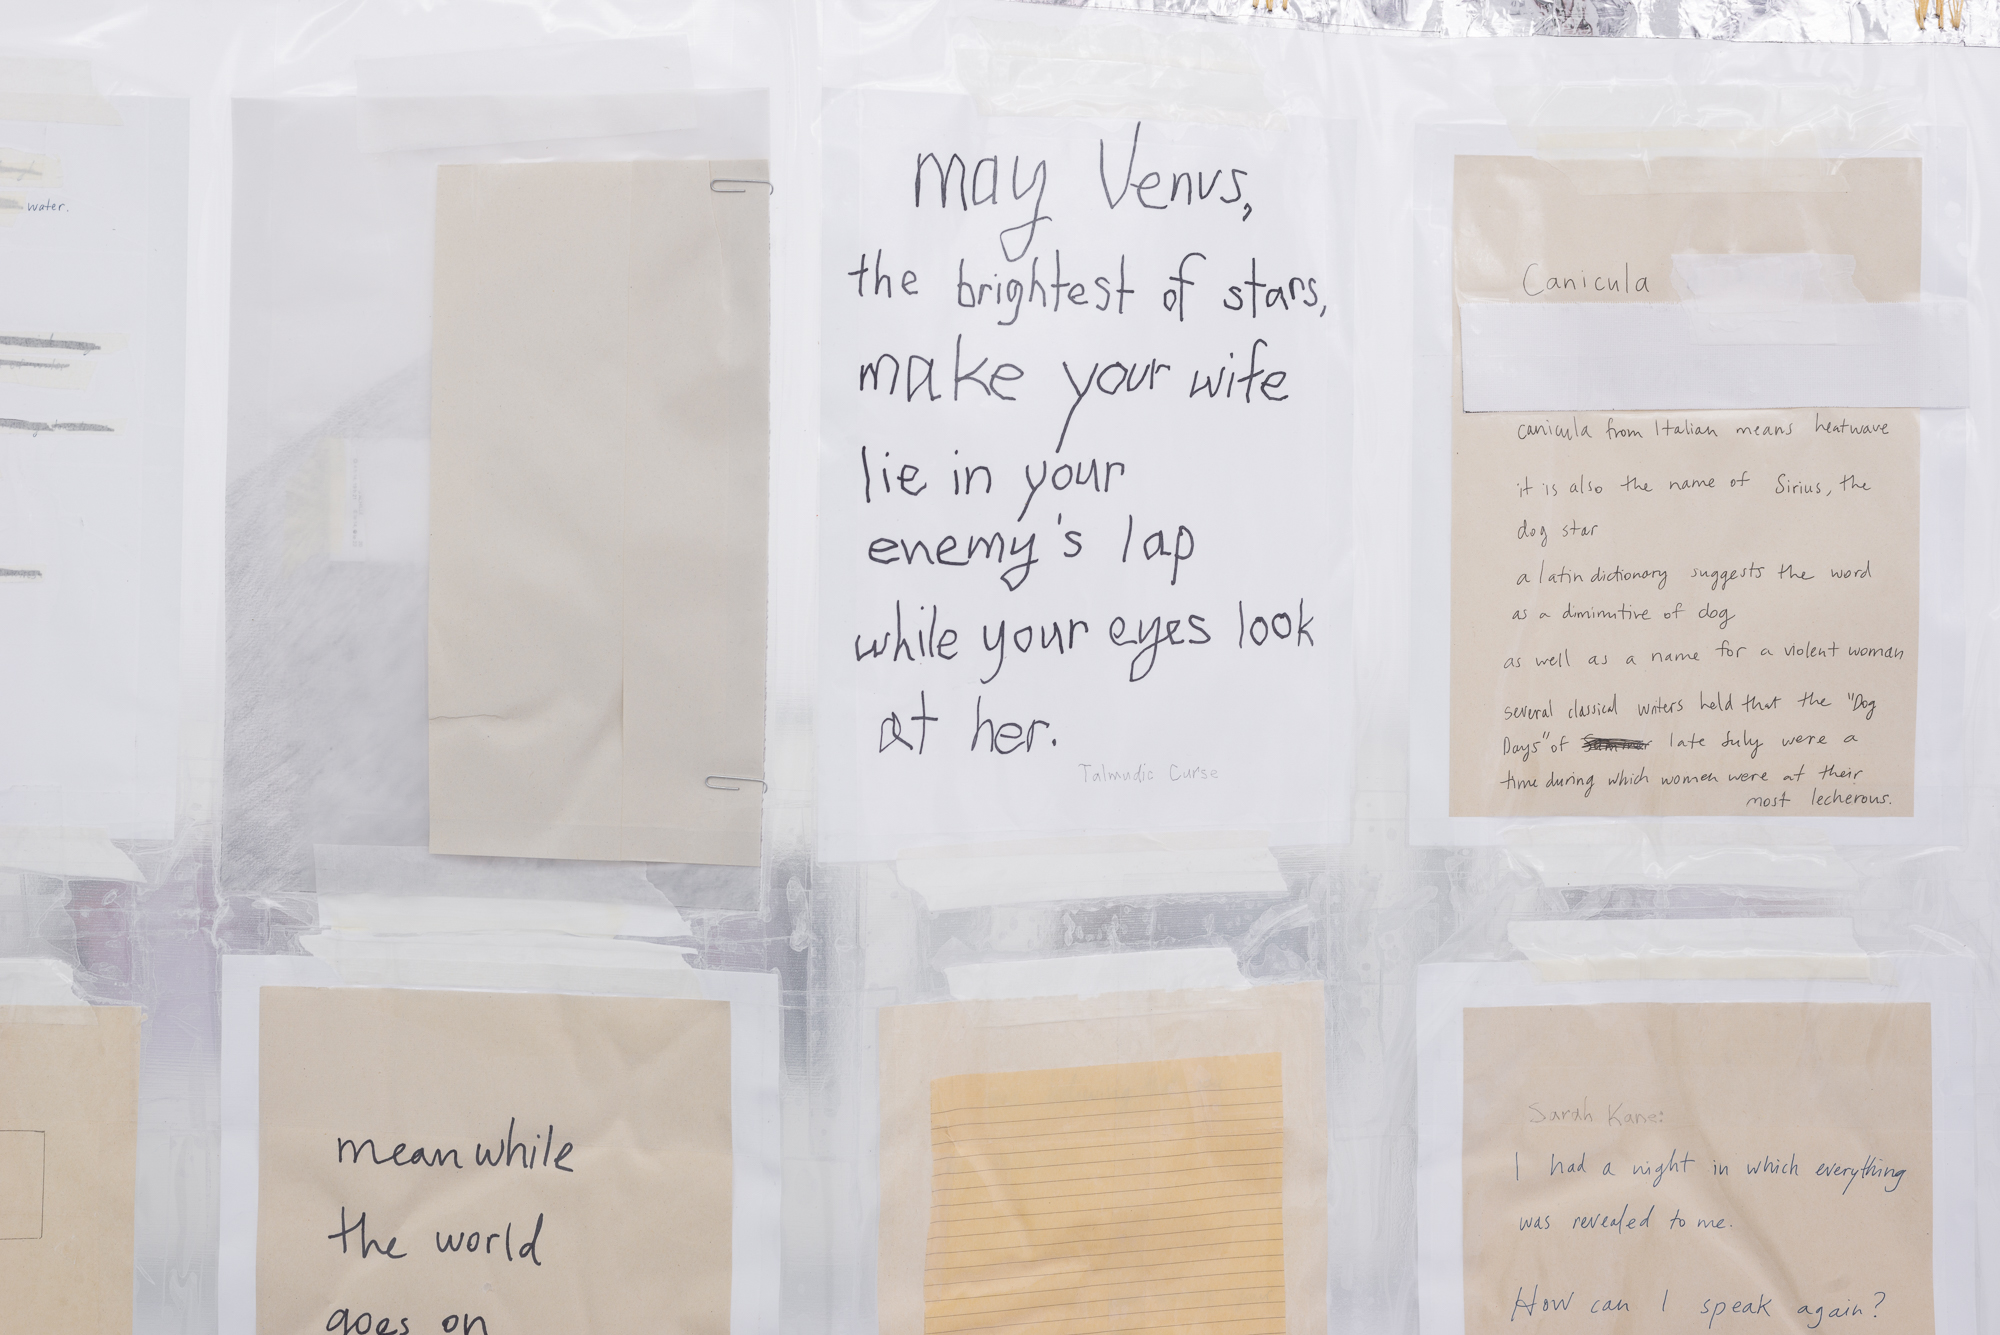 water.
may Venus,
the brightest of stars,
make your wife
lie in your
enemy's lap
while your eyes look
at her.
Talmudic Curse
Canicula
canicula from Italian means heatwave
it is also the name of Sirius, the
dog star
a latin dictionary suggests the word
as a diminutive of dog
as well as a name for a violent woman
several classical writers held that the "Dog
Days" of late July were a
time during which women were at their
most lecherous.
meanwhile
the world
goes on
Sarah Kane:
I had a night in which everything
was revealed to me.
How can I speak again?